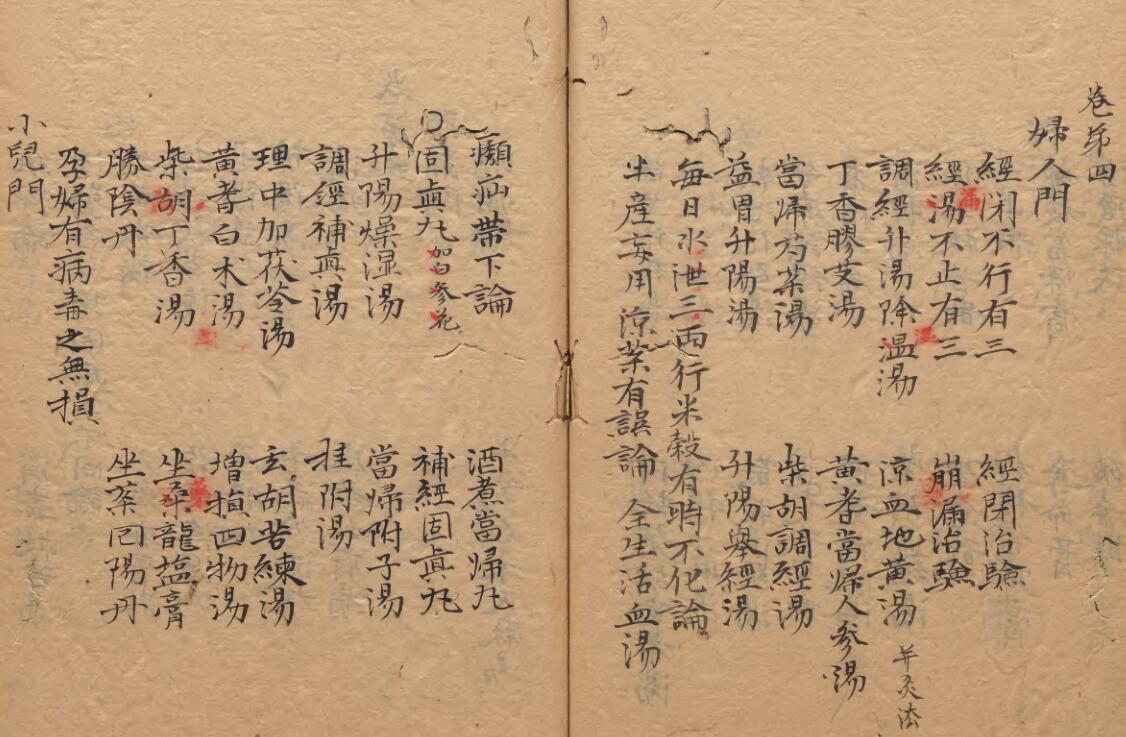 卷苐四
婦人門
經闭不行有三 經閉治驗
經湯不止有三 崩漏治驗
漏
調經升湯除温湯 涼血地黄湯 并灸法
湿
丁香膠艾湯 黄耆當歸人参湯
當歸芍薬湯 柴胡調經湯
益胃升陽湯 升陽舉經湯
每日水泄三両行米穀有時不化論
半産妄用涼薬有誤論 全生活血湯
癩疝帶下論 酒煮當歸丸
〇固眞丸 加白参花 補經固眞丸
升陽燥湿湯 當歸附子湯
調經補眞湯 桂附湯
理中加茯苓湯 玄胡苦練湯
黄耆白术湯 増損四物湯
柴胡丁香湯 坐桒龍塩膏
勝陰丹 坐薬回陽丹
孕婦有病毒之無損
小兒門